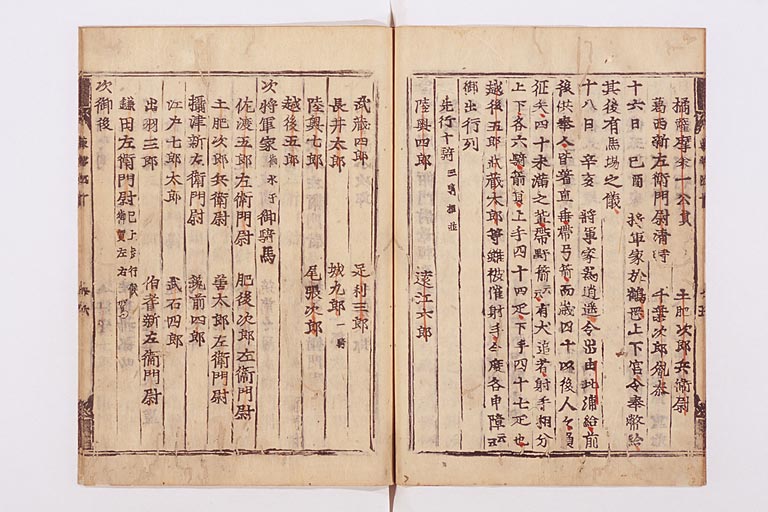 橘薩摩余一公貫 土肥次郎兵衛尉
葛西新左衛門尉清時 千葉次郎胤泰
十六日 己酉 将軍家於鶴岡上下宮令奉幣給
其後有馬場之儀
十八日 辛亥 将軍家為逍遥令出由比浦給前
後供奉人皆著直垂帯弓箭而歳四十以後人々負
征矢四十未満之輩帯野箭云々有犬追者射手相分
上下各六騎箭員上手四十四疋下手四十七疋也
越後五郎武蔵太郎等雖被催射手今度各申障云々
御出行列
先行十騎 三騎相並
陸奥四郎 遠江六郎
武蔵四郎 足利三郎
長井太郎 城九郎 一騎
陸奥七郎 尾張次郎
越後五郎
次将軍家 御水干 御騎馬
佐渡五郎左衛門尉 肥後次郎左衛門尉
土肥次郎兵衛尉 善太郎左衛門尉
攝津新左衛門尉 筑前四郎
江戸七郎太郎 武石四郎
出羽三郎 伯耆新左衛門尉
鎌田左衛門尉 已上歩行候御駕左右
次御後